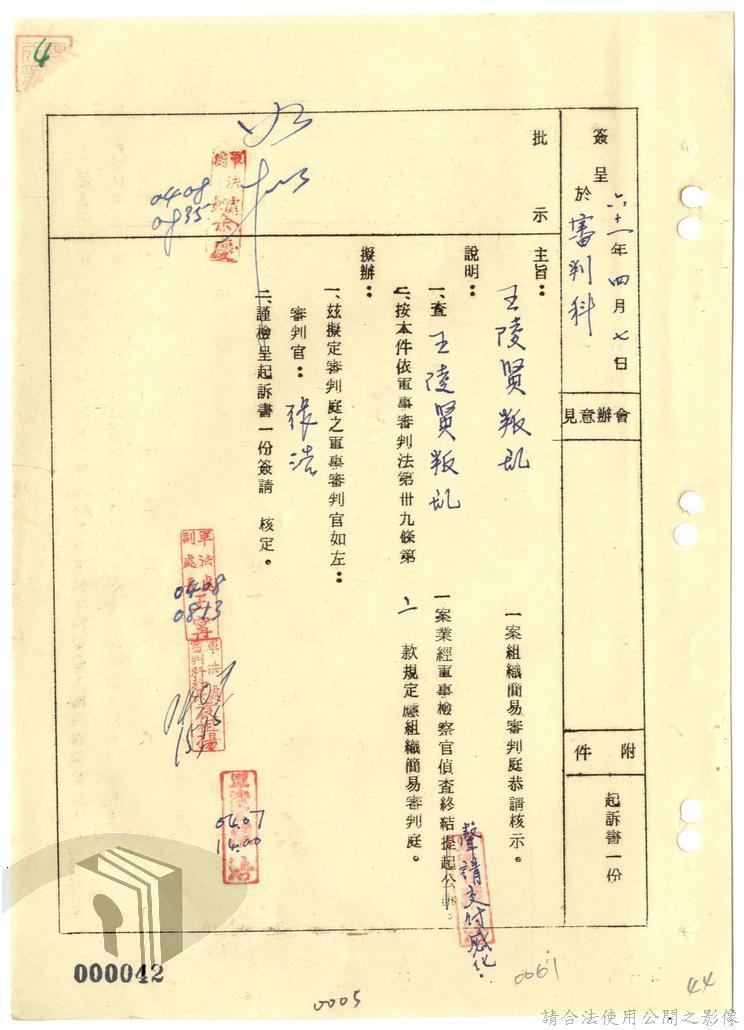 簽呈 六十一年四月七日
於審判科
會辦意見
附件
起訴書一份
批示
如擬
主旨：王陵賢叛乱一案組織簡易審判庭恭請核示。
說明：
一、查王陵賢叛乱一案業經軍事檢察官偵查終結提起公訴。
聲請交付感化.
二、按本件依軍事審判法第卅九條第二款規定應組織簡易審判庭。
擬辦：
一、茲擬定審判庭之軍事審判官如左：
審判官：張浩
二、謹檢呈起訴書一份簽請 核定。
軍法處處長
0408
0835
軍法處副處長
0408
0813
軍法處審判科科長
0407
1515
0407
1400
4
000042
0005
0061
44
請合法使用公開之影像